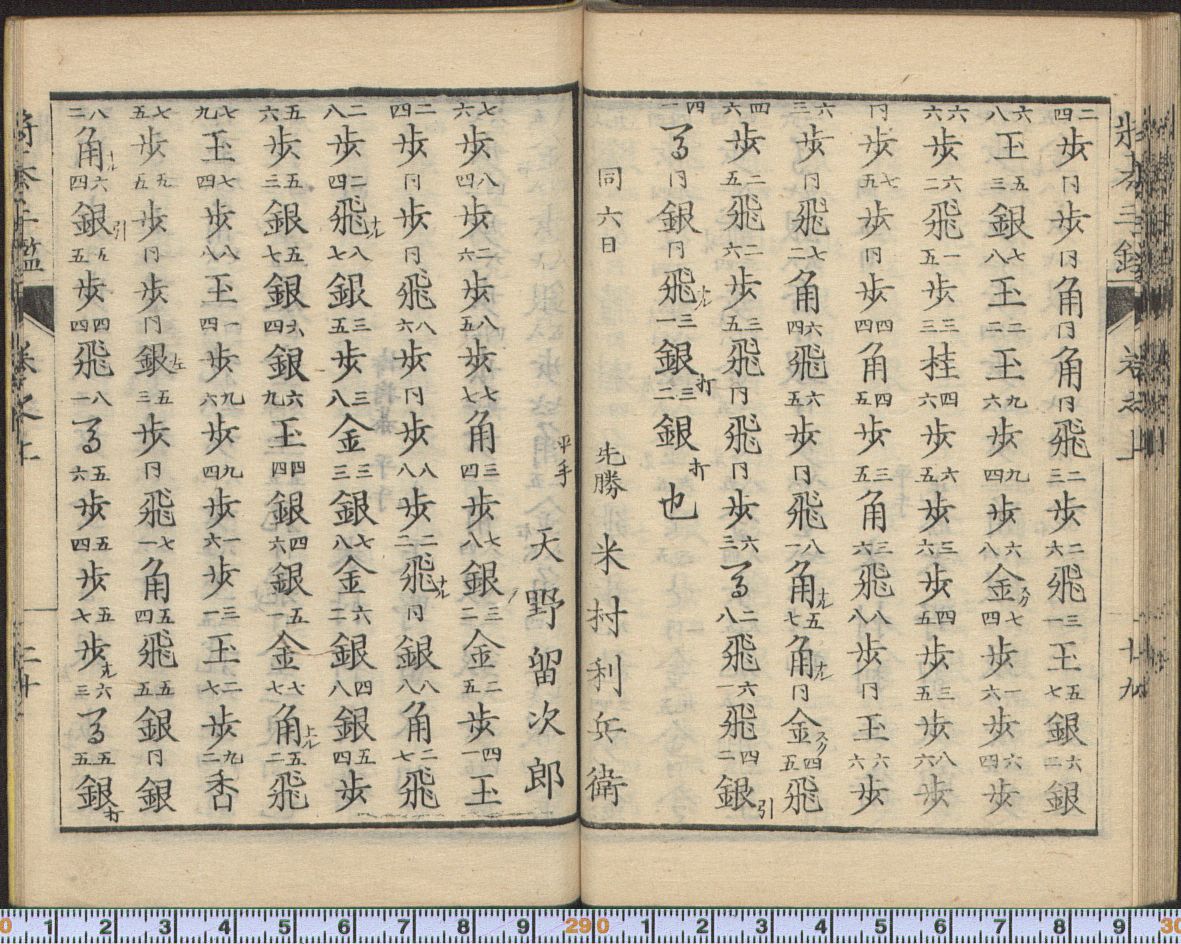 将棊手鑑 巻之上 十九
二四歩 同歩 同角 同角 同飛 二三歩 二六飛 三一王 五七銀 銀
六八王 五三銀 七八王 二二王 九六歩 九四歩 六八金スグ 七四歩 一六歩 六四歩
六六歩 六二飛 一五歩 三三桂 四六歩 六五歩 三六歩 四五歩 三五歩 八六歩
同歩 七五歩 同歩 四四角 四五歩 三五角 三六飛 八八歩 同王 六六歩
六三歩 同飛 七二角 六四飛 六五歩 同飛 八一角ナル 五七角ナル 同金スグ 四五飛
四六歩 二五飛 二六歩 三五飛 同飛 同歩 六三馬 二八飛 六一飛 四二銀引
四二馬 同銀 同飛ナル 三一銀打 三二銀打也
同六日 先勝 米村利兵衛
平手 天野留次郎
七六歩 八四歩 二六歩 八五歩 七七角 三四歩 七八銀 三二金 二五歩 四一王
二四歩 同歩 同飛 八六歩 同歩 八八歩 二二飛ナル 同銀 八八角 二七飛
二八歩 二四飛ナル 八七銀 三五歩 三八金 三三銀 七八金 六二銀 四八銀 五四歩
五六歩 五三銀 五七銀 六四銀 六九王 四四銀 四六銀 五一金 七七角上ル 五二飛
七九王 七四歩 八八王 一四歩 九六歩 九四歩 一六歩 三一王 二七歩 九二香
七五歩 五五歩 同歩 同銀左 五三歩 同飛 七一角 五四飛 五五銀 同銀
八二角ナル 六四銀引 五五歩 四四飛 八一馬 五六歩 五四歩 五七歩ナル 六三馬 五五銀打
将棊手鑑 巻之上 二十